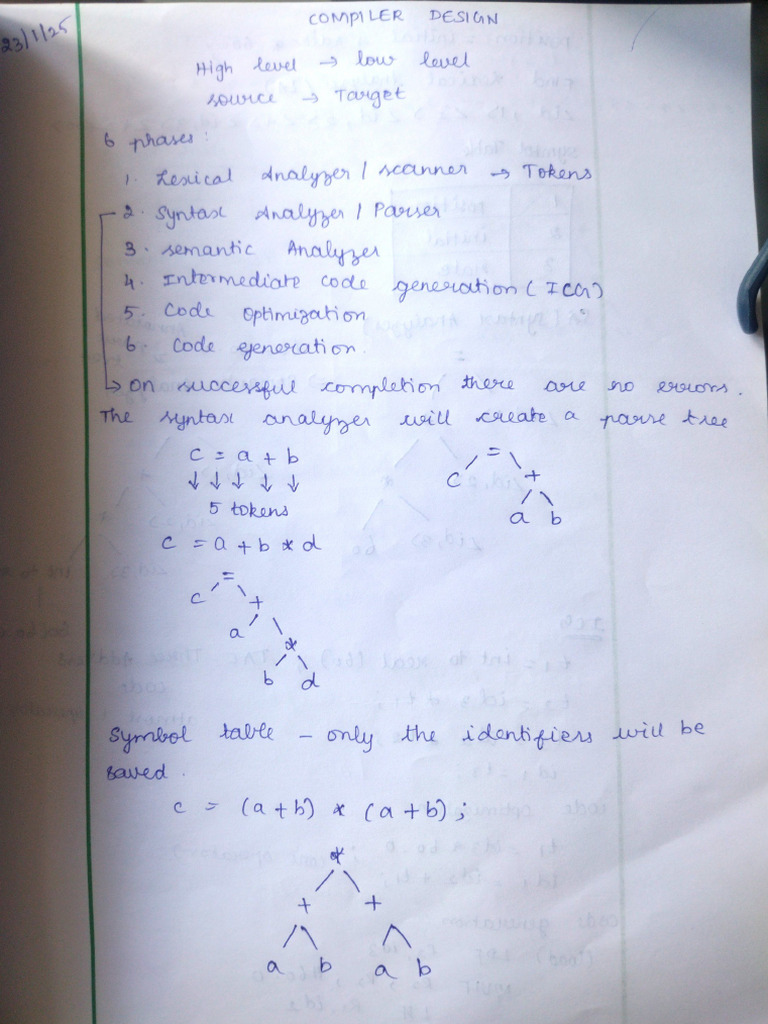 23/1/25
COMPILER DESIGN
High level → low level
source → Target
6 phases:
1. Lexical Analyzer / scanner → Tokens
2. Syntax Analyzer / Parser
3. semantic Analyzer
4. Intermediate code generation (ICG)
5. Code Optimization
6. Code generation.
↳ on successful completion there are no errors.
The syntax analyzer will create a parse tree
c = a + b
↓ ↓ ↓ ↓ ↓
5 tokens
=
c +
a b
c = a + b * d
=
c +
a *
b d
Symbol table – only the identifiers will be
saved.
c = (a + b) * (a + b);
*
+ +
a b a b